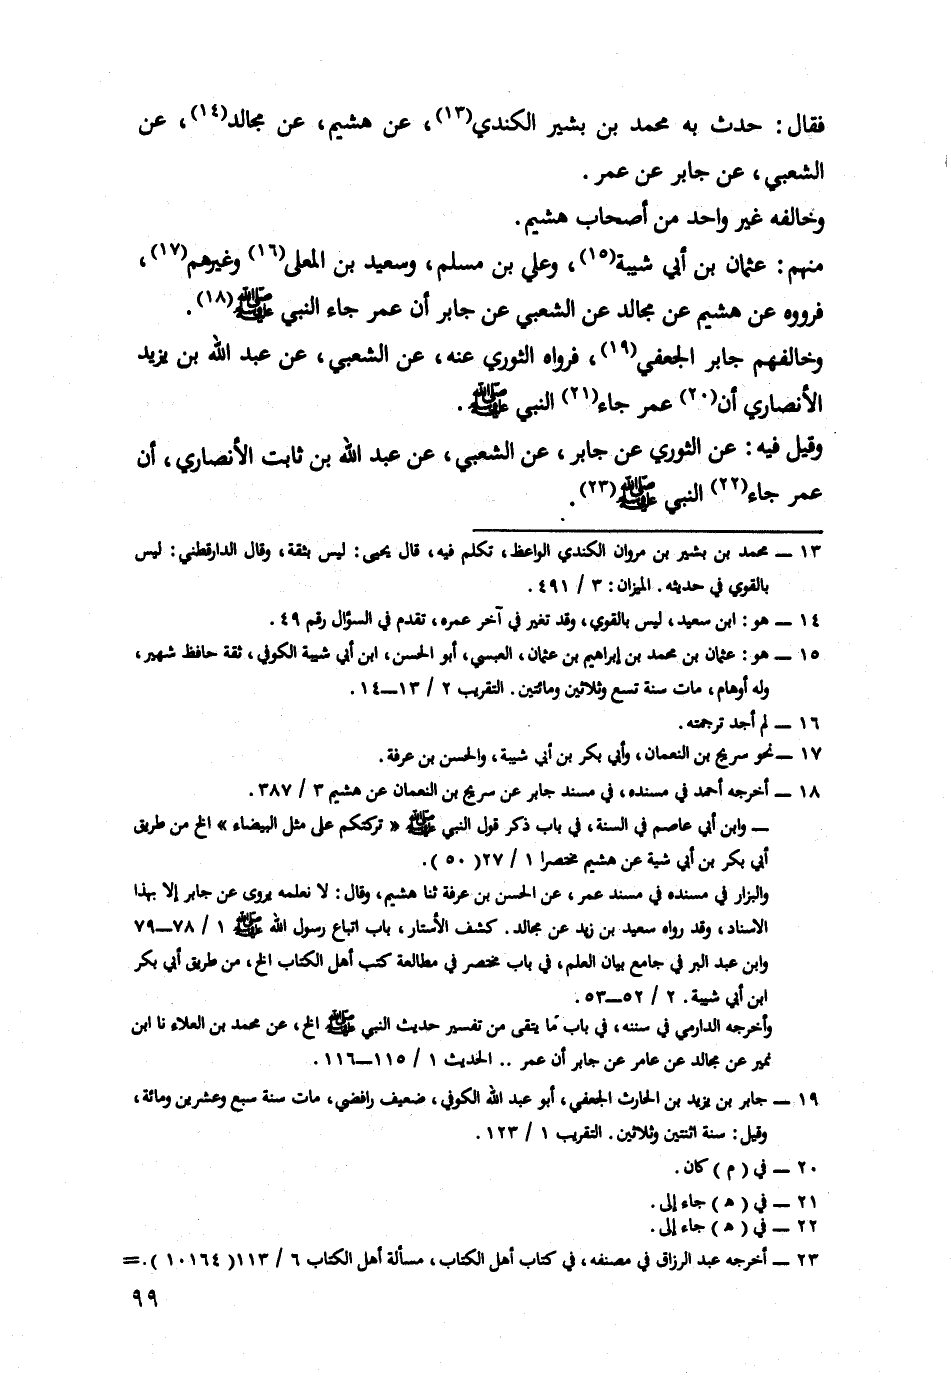 فقال: حدث به محمد بن بشير الكندي(١٣)، عن هشيم، عن مجالد(١٤)، عن
الشعبي، عن جابر عن عمر.
وخالفه غير واحد من أصحاب هشيم.
منهم: عثمان بن أبي شيبة(١٥)، وعلي بن مسلم، وسعيد بن المعلى(١٦) وغيرهم(١٧)،
فرووه عن هشيم عن مجالد عن الشعبي عن جابر أن عمر جاء النبي ﷺ(١٨).
وخالفهم جابر الجعفي(١٩)، فرواه الثوري عنه، عن الشعبي، عن عبد الله بن يزيد
الأنصاري أن(٢٠) عمر جاء(٢١) النبي ﷺ.
وقيل فيه: عن الثوري عن جابر، عن الشعبي، عن عبد الله بن ثابت الأنصاري، أن
عمر جاء(٢٢) النبي ﷺ(٢٣).
١٣ — محمد بن بشير بن مروان الكندي الواعظ، تكلم فيه، قال يحيى: ليس بثقة، وقال الدارقطني: ليس
بالقوي في حديثه. الميزان: ٣ / ٤٩١.
١٤ — هو: ابن سعيد، ليس بالقوي، وقد تغير في آخر عمره، تقدم في السؤال رقم ٤٩.
١٥ — هو: عثمان بن محمد بن إبراهيم بن عثمان، العبسي، أبو الحسن، ابن أبي شيبة الكوفي، ثقة حافظ شهير،
وله أوهام، مات سنة تسع وثلاثين ومائتين. التقريب ٢ / ١٣—١٤.
١٦ — لم أجد ترجمته.
١٧ — نحو سريج بن النعمان، وأبي بكر بن أبي شيبة، والحسن بن عرفة.
١٨ — أخرجه أحمد في مسنده، في مسند جابر عن سريج بن النعمان عن هشيم ٣ / ٣٨٧.
— وابن أبي عاصم في السنة، في باب ذكر قول النبي ﷺ « تركتكم على مثل البيضاء » الخ من طريق
أبي بكر بن أبي شيبة عن هشيم مختصرا ١ / ٢٧( ٥٠ ).
والبزار في مسنده في مسند عمر، عن الحسن بن عرفة ثنا هشيم، وقال: لا نعلمه يروى عن جابر إلا بهذا
الاسناد، وقد رواه سعيد بن زيد عن مجالد. كشف الأستار، باب اتباع رسول الله ﷺ ١ / ٧٨—٧٩
وابن عبد البر في جامع بيان العلم، في باب مختصر في مطالعة كتب أهل الكتاب الخ، من طريق أبي بكر
ابن أبي شيبة. ٢ / ٥٢—٥٣.
وأخرجه الدارمي في سننه، في باب ما يتقى من تفسير حديث النبي ﷺ الخ، عن محمد بن العلاء نا ابن
نمير عن مجالد عن عامر عن جابر أن عمر .. الحديث ١ / ١١٥—١١٦.
١٩ — جابر بن يزيد بن الحارث الجعفي، أبو عبد الله الكوفي، ضعيف رافضي، مات سنة سبع وعشرين ومائة،
وقيل: سنة اثنتين وثلاثين. التقريب ١ / ١٢٣.
٢٠ — في ( م ) كان.
٢١ — في ( ه ) جاء إلى.
٢٢ — في ( ه ) جاء إلى.
٢٣ — أخرجه عبد الرزاق في مصنفه، في كتاب أهل الكتاب، مسألة أهل الكتاب ٦ / ١١٣( ١٠١٦٤ ).=
٩٩